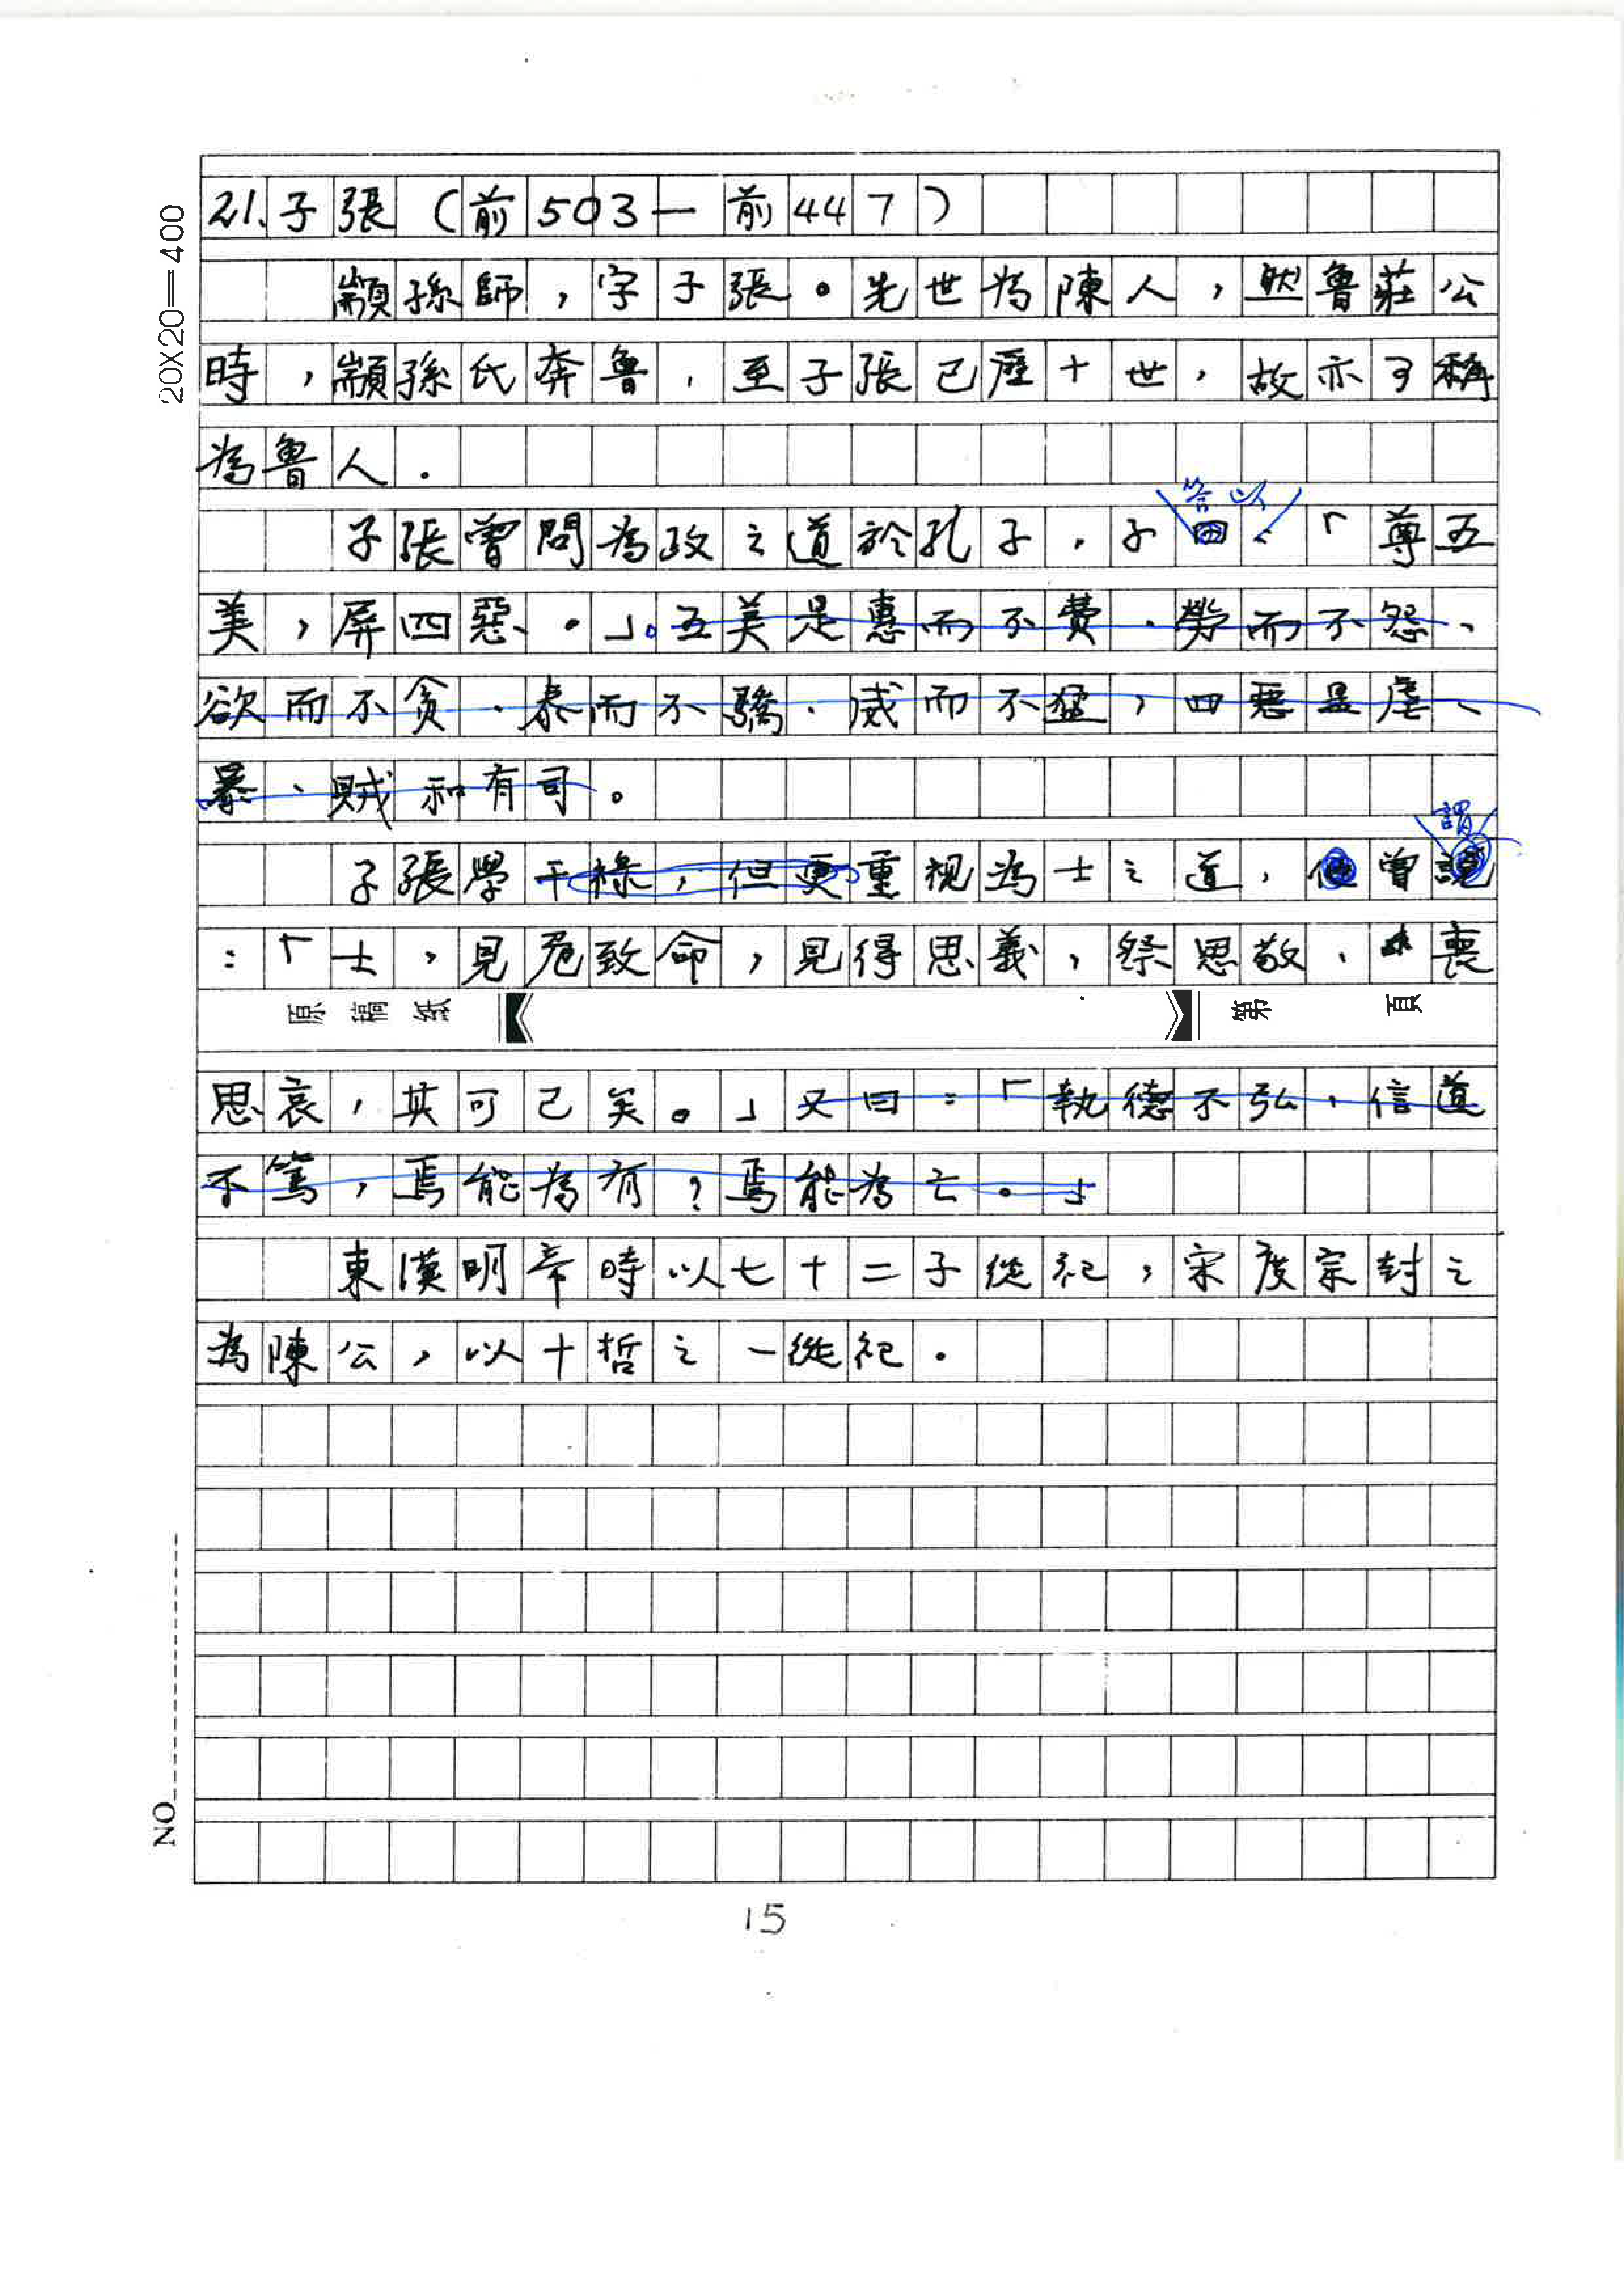 20X20=400
21.子張(前503—前447)
顓孫師，字子張。先世為陳人，然魯莊公
時，顓孫氏奔魯，至子張已歷十世，故亦可稱
為魯人。
答以
子張曾問為政之道於孔子，子曰：「尊五
美，屏四惡。」。五美是惠而不費、勞而不怨、
欲而不貪、泰而不驕、威而不猛，四惡是虐、
暴、賊和有司。
謂
子張學干祿，但更重視為士之道，他曾說
：「士，見危致命，見得思義，祭思敬，喪
原稿紙 第 頁
思哀，其可已矣。」又曰：「執德不弘，信道
不篤，焉能為有？焉能為亡。」
東漢明帝時以七十二子從祀，宋度宗封之
為陳公，以十哲之一從祀。
NO
15